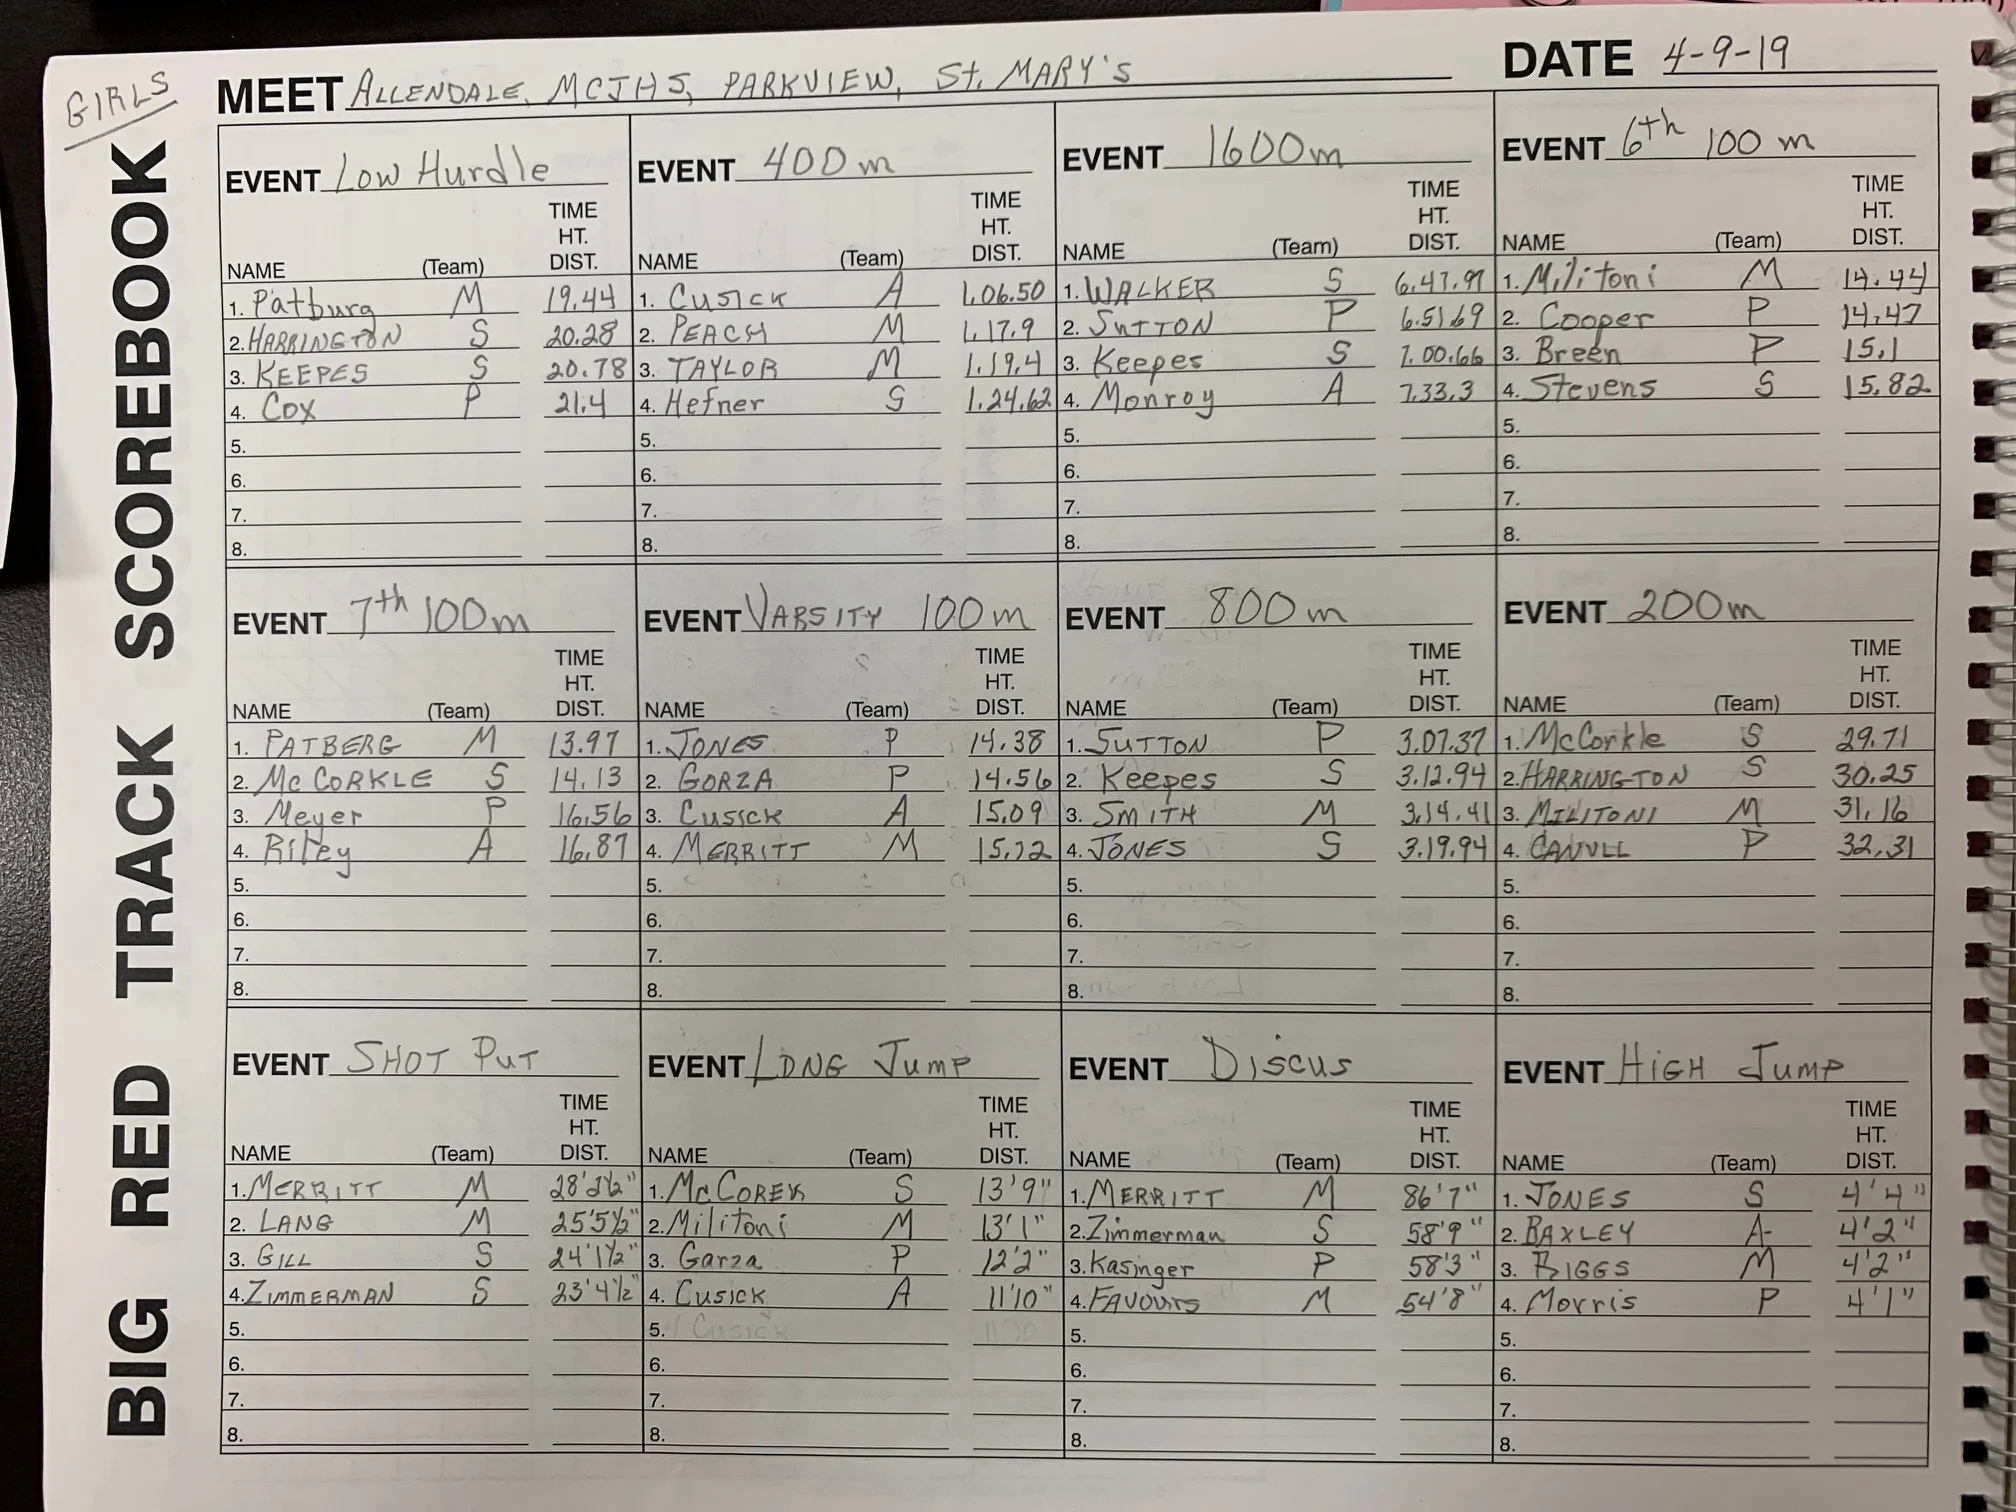 GIRLS
BIG RED TRACK SCOREBOOK
MEET ALLENDALE, MCJHS, PARKVIEW, St. MARY'S
DATE 4-9-19
EVENT Low Hurdle
TIME
HT.
NAME (Team) DIST.
1. Patburg M 19.44
2. HARRINGTON S 20.28
3. KEEPES S 20.78
4. Cox P 21.4
5.
6.
7.
8.
EVENT 400m
TIME
HT.
NAME (Team) DIST.
1. CUSICK A 1.06.50
2. PEACH M 1.17.9
3. TAYLOR M 1.19.4
4. Hefner S 1.24.62
5.
6.
7.
8.
EVENT 1600m
TIME
HT.
NAME (Team) DIST.
1. WALKER S 6.47.97
2. SUTTON P 6.51.69
3. Keepes S 7.00.66
4. Monroy A 7.33.3
5.
6.
7.
8.
EVENT 6th 100 m
TIME
HT.
NAME (Team) DIST.
1. Militoni M 14.44
2. Cooper P 14.47
3. Breen P 15.1
4. Stevens S 15.82
5.
6.
7.
8.
EVENT 7th 100m
TIME
HT.
NAME (Team) DIST.
1. PATBERG M 13.97
2. McCORKLE S 14.13
3. Meyer P 16.56
4. Riley A 16.87
5.
6.
7.
8.
EVENT VARSITY 100m
TIME
HT.
NAME (Team) DIST.
1. JONES P 14.38
2. GORZA P 14.56
3. CUSICK A 15.09
4. MERRITT M 15.72
5.
6.
7.
8.
EVENT 800m
TIME
HT.
NAME (Team) DIST.
1. SUTTON P 3.07.37
2. Keepes S 3.12.94
3. SMITH M 3.14.41
4. JONES S 3.19.94
5.
6.
7.
8.
EVENT 200m
TIME
HT.
NAME (Team) DIST.
1. McCorkle S 29.71
2. HARRINGTON S 30.25
3. MILITONI M 31.16
4. CANULL P 32.31
5.
6.
7.
8.
EVENT SHOT PUT
TIME
HT.
NAME (Team) DIST.
1. MERRITT M
2. LANG M 25'5½"
3. GILL S 24'1½"
4. ZIMMERMAN S 23'4½"
5.
6.
7.
8.
EVENT LONG JUMP
TIME
HT.
NAME (Team) DIST.
1. S 13'9"
2. Militoni M 13'1"
3. Garza P 12'2"
4. CUSICK A 11'10"
5. Cusick
6.
7.
8.
EVENT DISCUS
TIME
HT.
NAME (Team) DIST.
1. MERRITT M 86'7"
2. Zimmerman S 58'9"
3. Kasinger P 58'3"
4. FAVOURS M 54'8"
5.
6.
7.
8.
EVENT HIGH JUMP
TIME
HT.
NAME (Team) DIST.
1. JONES S 4'4"
2. BAXLEY A 4'2"
3. BIGGS M 4'2"
4. Morris P 4'1"
5.
6.
7.
8.